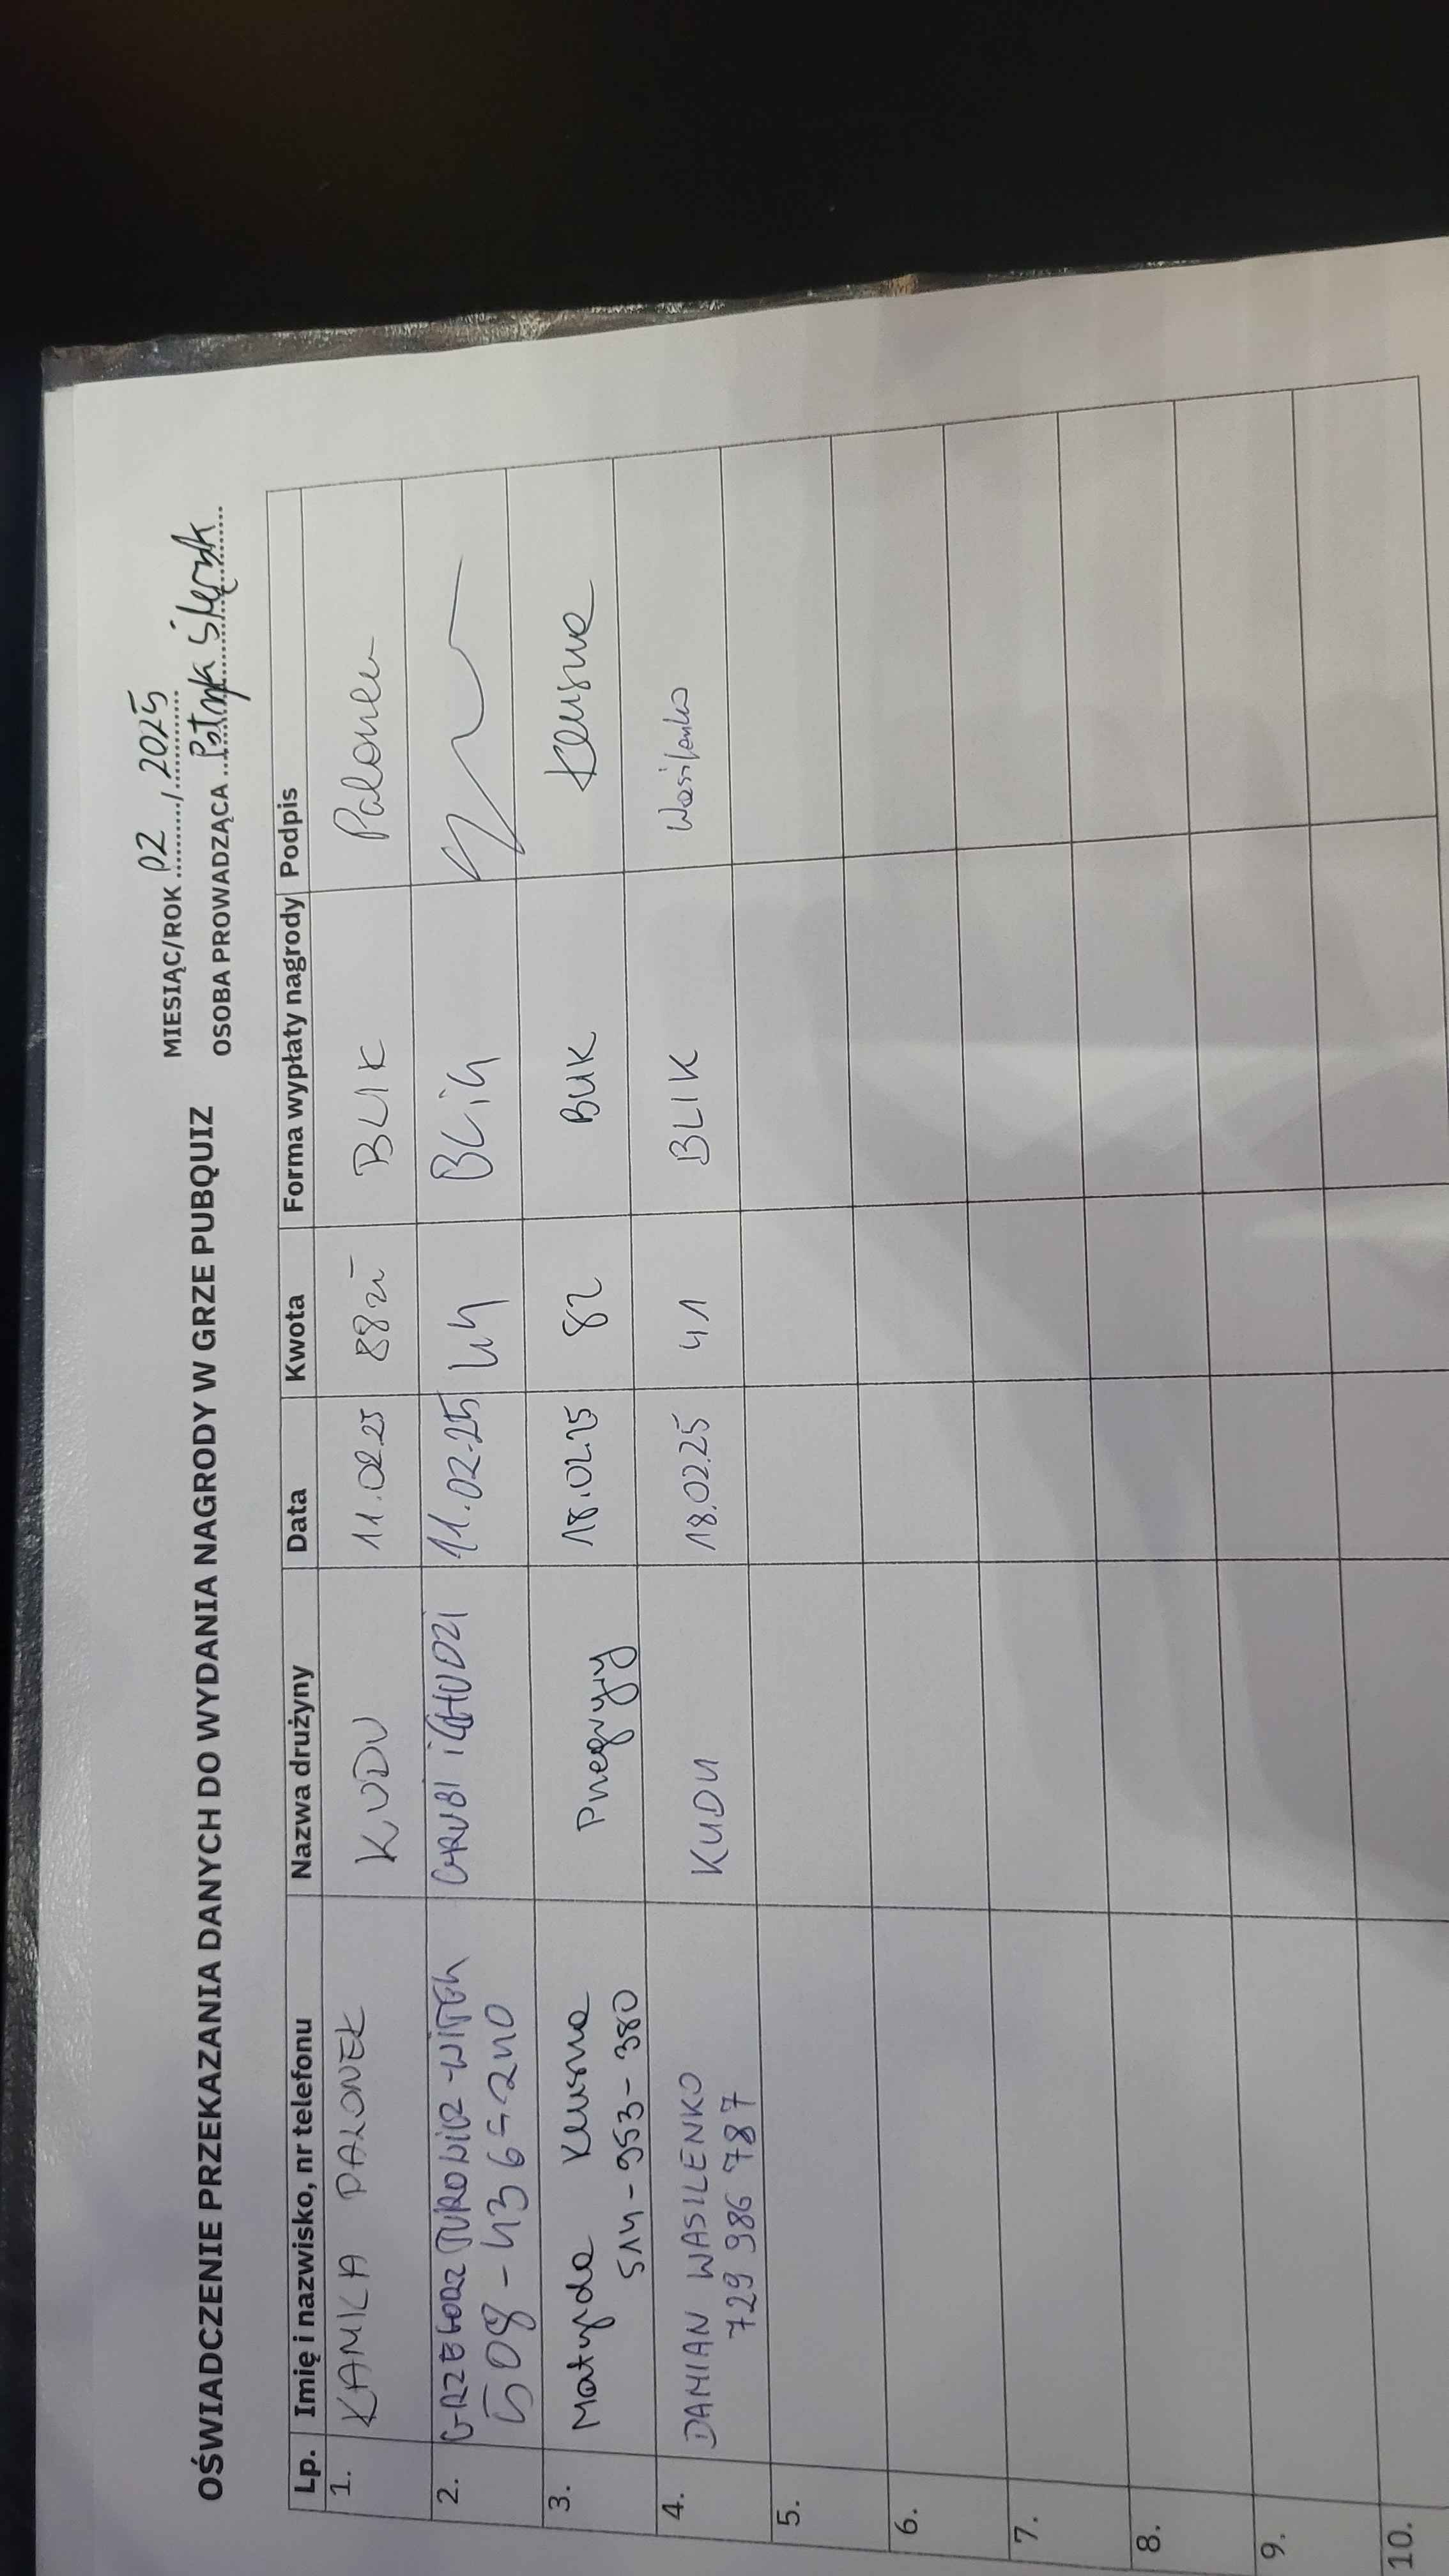 MIESIĄC/ROK 02 / 2025
OŚWIADCZENIE PRZEKAZANIA DANYCH DO WYDANIA NAGRODY W GRZE PUBQUIZ
OSOBA PROWADZĄCA Patryk
Lp. Imię i nazwisko, nr telefonu Nazwa drużyny Data Kwota Forma wypłaty nagrody Podpis
1. KAMILA PALONEK KUDU 11.02.25 88 zł BLIK Palonek
2. GRZEGORZ TUROWICZ-WITEK GRUBI i CHUDZI 11.02.25 44 BLiK
508-436-240
3. Matylda 18.02.25 82 BLIK
514-953-380
4. DAMIAN WASILENKO KUDU 18.02.25 41 BLIK Wasilenko
729 986 787
5.
6.
7.
8.
9.
10.